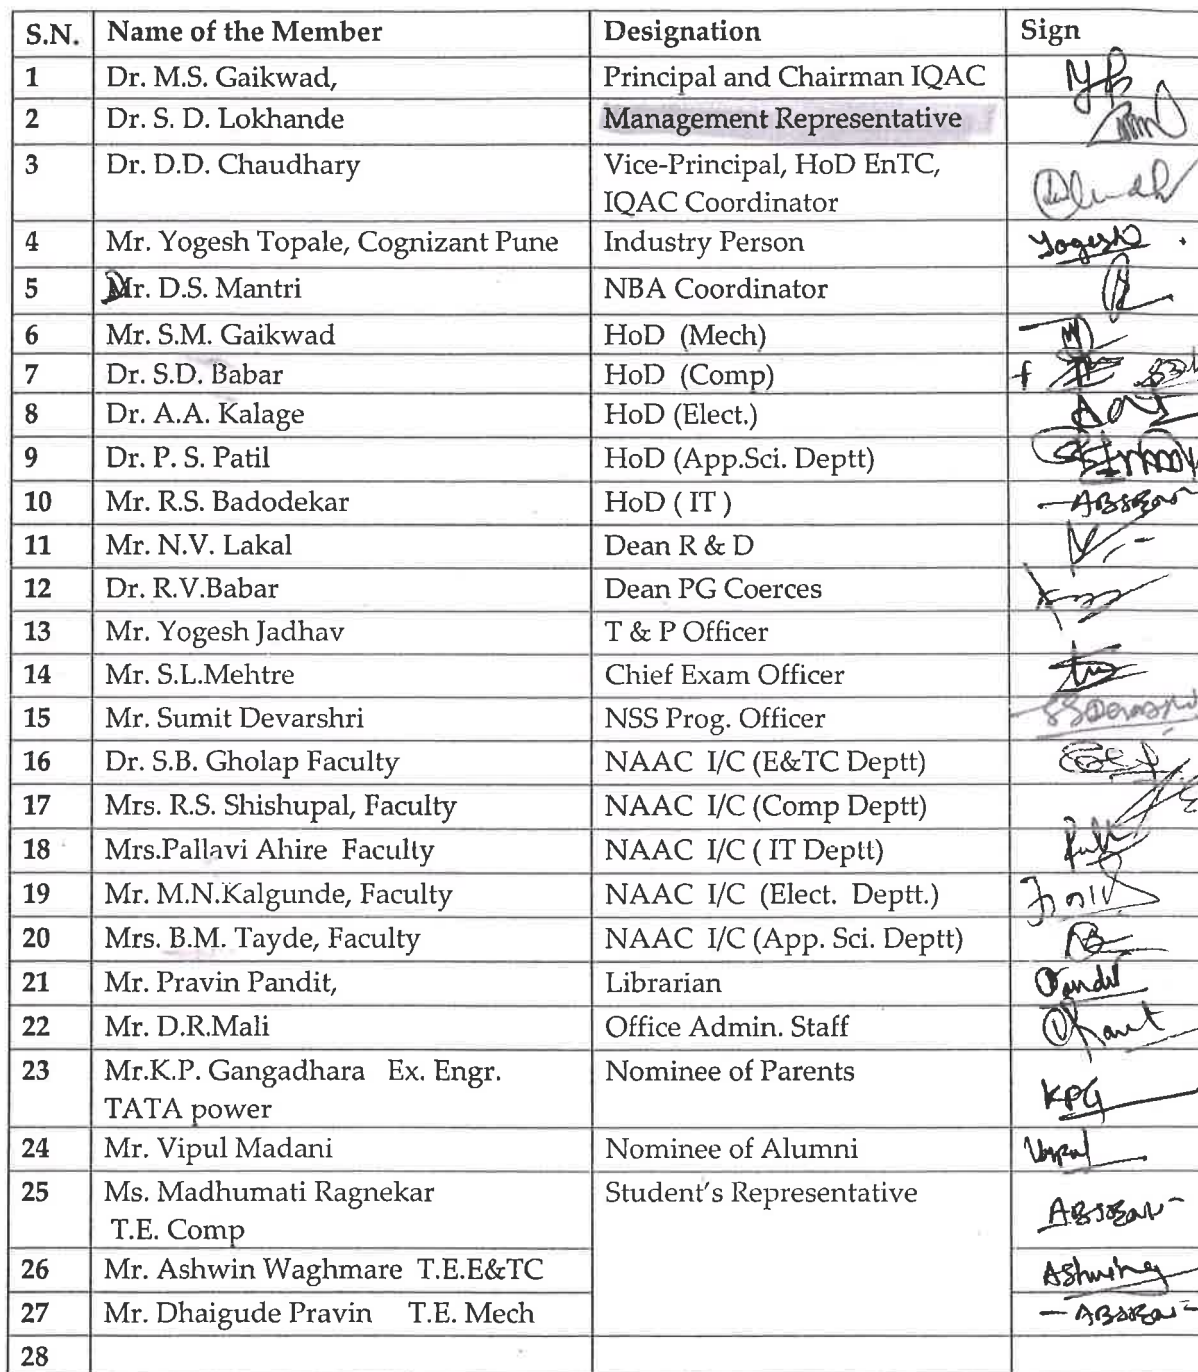 S.N. Name of the Member Designation Sign
1 Dr. M.S. Gaikwad, Principal and Chairman IQAC
2 Dr. S. D. Lokhande Management Representative
3 Dr. D.D. Chaudhary Vice-Principal, HoD EnTC,
IQAC Coordinator
4 Mr. Yogesh Topale, Cognizant Pune Industry Person Yogesh
5 Dr. D.S. Mantri NBA Coordinator
6 Mr. S.M. Gaikwad HoD (Mech)
7 Dr. S.D. Babar HoD (Comp)
8 Dr. A.A. Kalage HoD (Elect.)
9 Dr. P. S. Patil HoD (App.Sci. Deptt)
10 Mr. R.S. Badodekar HoD ( IT ) - ABSENT
11 Mr. N.V. Lakal Dean R & D
12 Dr. R.V.Babar Dean PG Coerces
13 Mr. Yogesh Jadhav T & P Officer
14 Mr. S.L.Mehtre Chief Exam Officer
15 Mr. Sumit Devarshri NSS Prog. Officer
16 Dr. S.B. Gholap Faculty NAAC I/C (E&TC Deptt)
17 Mrs. R.S. Shishupal, Faculty NAAC I/C (Comp Deptt)
18 Mrs.Pallavi Ahire Faculty NAAC I/C ( IT Deptt)
19 Mr. M.N.Kalgunde, Faculty NAAC I/C (Elect. Deptt.)
20 Mrs. B.M. Tayde, Faculty NAAC I/C (App. Sci. Deptt)
21 Mr. Pravin Pandit, Librarian
22 Mr. D.R.Mali Office Admin. Staff
23 Mr.K.P. Gangadhara Ex. Engr. Nominee of Parents KPG
TATA power
24 Mr. Vipul Madani Nominee of Alumni Vipul
25 Ms. Madhumati Ragnekar Student's Representative ABSENT -
T.E. Comp
26 Mr. Ashwin Waghmare T.E.E&TC
27 Mr. Dhaigude Pravin T.E. Mech - ABSENT -
28